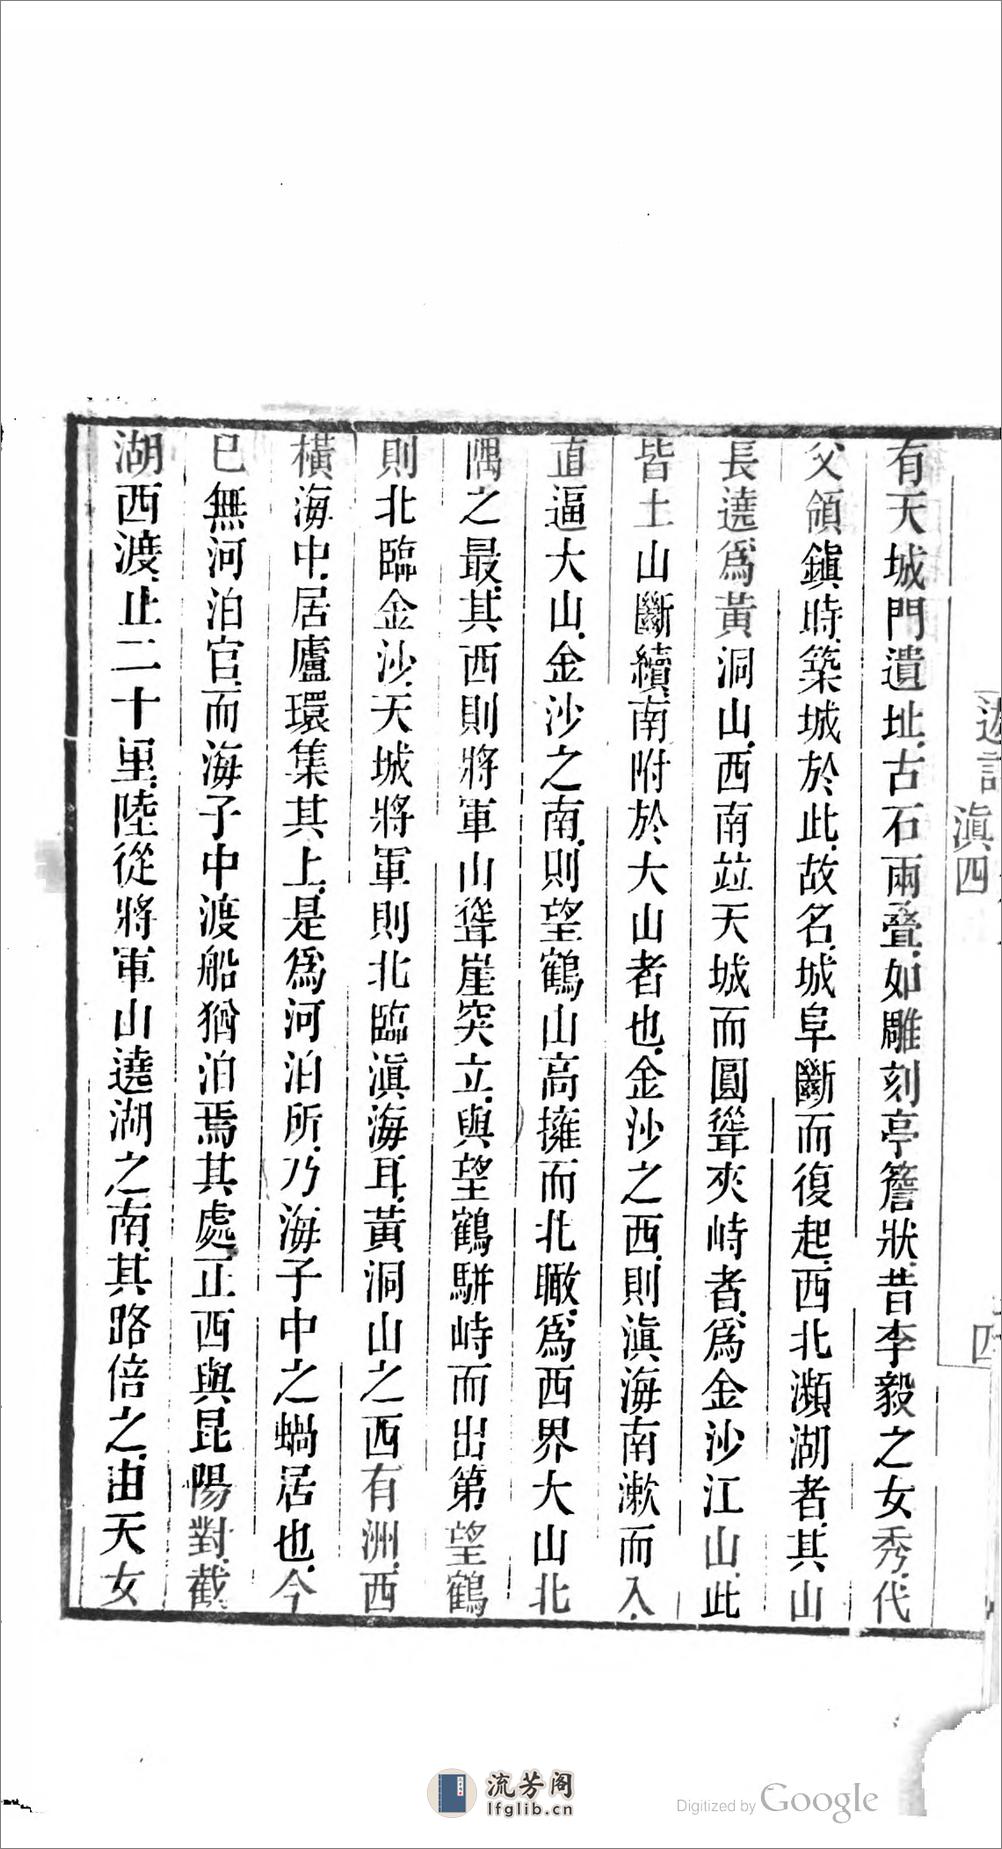 遊記
滇四
四
有天城門遺址、古石兩疊、如雕刻亭簷狀、昔李毅之女秀、代
父領鎭時、築城於此、故名、城阜斷而復起、西北瀕湖者、其山
長遶爲黃洞山、西南竝天城而圓聳夾峙者、爲金沙江山、此
皆土山斷續、南附於大山者也、金沙之西、則滇海南漱而入、
直逼大山、金沙之南、則望鶴山高擁而北瞰、爲西界大山北
隅之最、其西則將軍山聳崖突立、與望鶴駢峙而出第望鶴
則北臨金沙、天城將軍則北臨滇海耳、黃洞山之西有洲、西
橫海中、居廬環集其上、是爲河泊所、乃海子中之蝸居也、今
已無河泊官、而海子中渡船猶泊焉其處、正西與昆陽對、截
湖西渡、止二十里、陸從將軍山遶湖之南、其路倍之、由天女
流芳阁
lfglib.cn
Digitized by Google